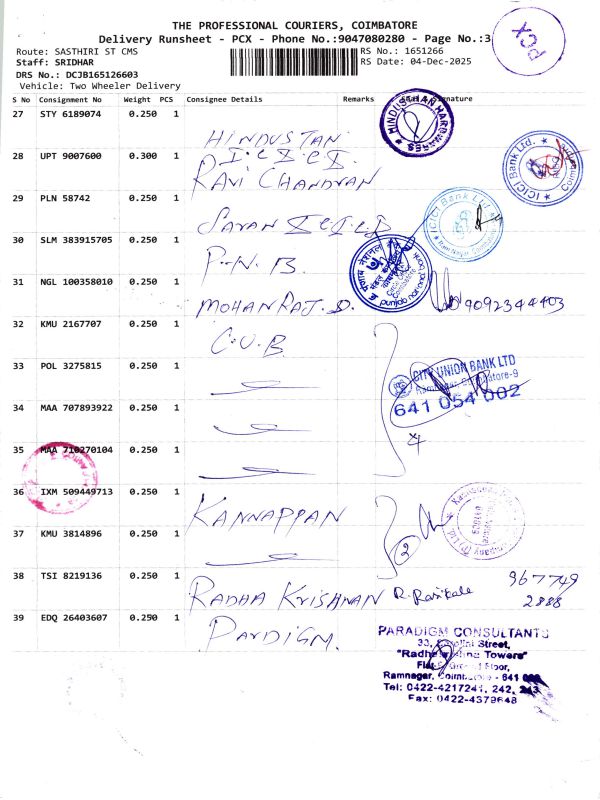 THE PROFESSIONAL COURIERS, COIMBATORE
Delivery Runsheet - PCX - Phone No.:9047080280 - Page No.:3
PCX
Route: SASTHIRI ST CMS
RS No.: 1651266
Staff: SRIDHAR
RS Date: 04-Dec-2025
DRS No.: DCJB165126603
Vehicle: Two Wheeler Delivery
S No Consignment No Weight PCS Consignee Details Remarks Seal & Signature
27 STY 6189074 0.250 1 HINDUSTAN
HINDUSTHAN HARDWARES
28 UPT 9007600 0.300 1 I.C.I.C.I.
RAVI CHANDRAN
ICICI Bank Ltd.
29 PLN 58742 0.250 1
ICICI Bank Ltd.
30 SLM 383915705 0.250 1 P.N.B.
punjab national bank
31 NGL 100358010 0.250 1 MOHAN RAJ.D. 9092344403
32 KMU 2167707 0.250 1 C.U.B.
33 POL 3275815 0.250 1
CITY UNION BANK LTD
Ramnagar, Coimbatore-9
641 054 002
34 MAA 707893922 0.250 1
4
35 MAA 710270104 0.250 1
36 IXM 509449713 0.250 1 KANNAPPAN
37 KMU 3814896 0.250 1
2
38 TSI 8219136 0.250 1 RADHA KRISHNAN 967749
2888
39 EDQ 26403607 0.250 1 PARDIGM.
PARADIGM CONSULTANTS
Street,
"Radhakrishna Towers"
Floor,
Ramnagar, Coimbatore - 641
Tel: 0422-4217241, 242, 243
Fax: 0422-4379648